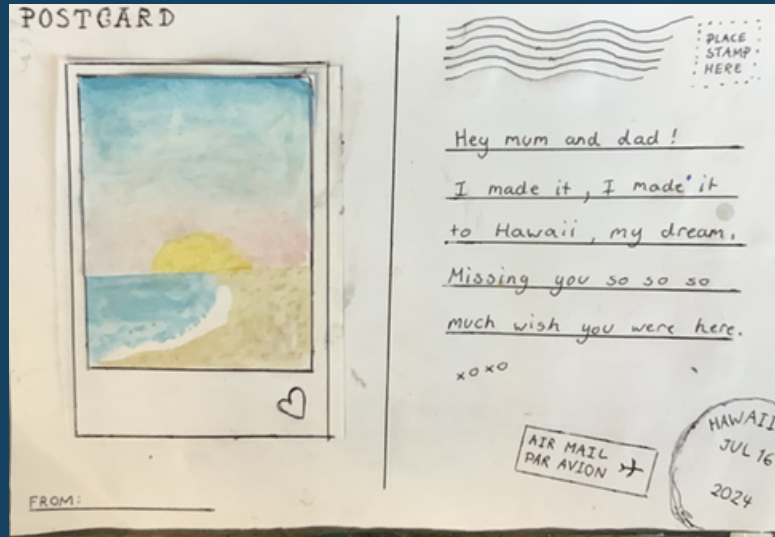 POSTCARD
FROM:
PLACE
STAMP
HERE
Hey mum and dad!
I made it, I made it
to Hawaii, my dream.
Missing you so so so
much wish you were here.
xoxo
AIR MAIL
PAR AVION
HAWAII
JUL 16
2024